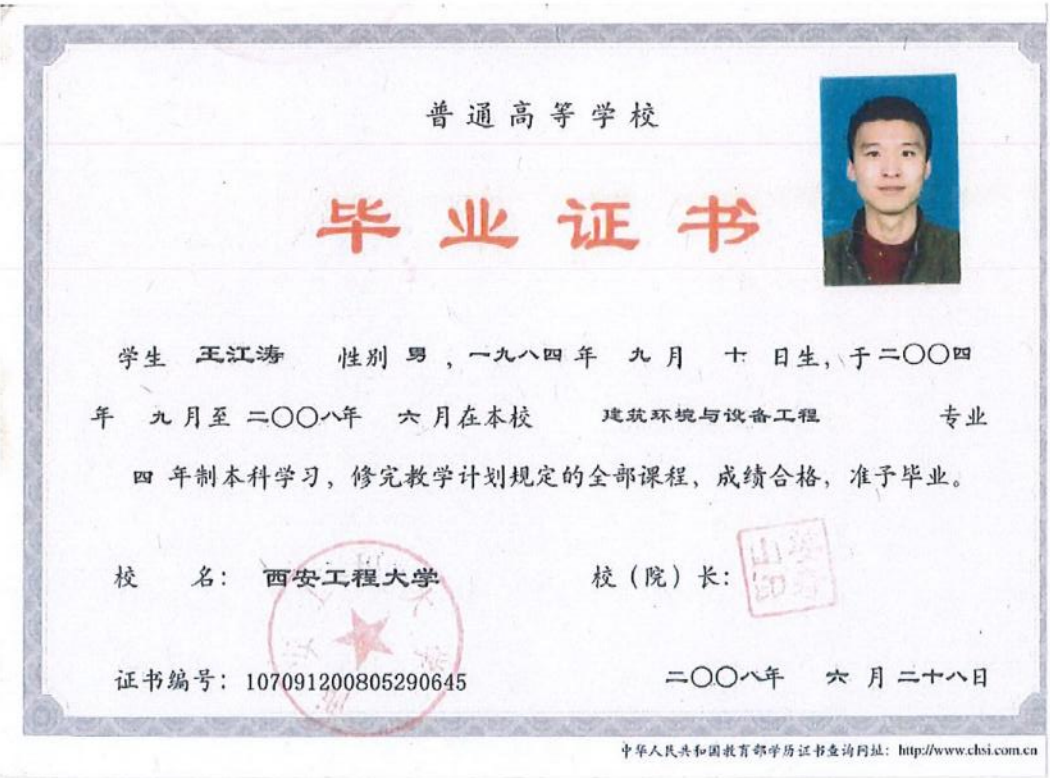 普通高等学校
毕业证书
学生 王江涛 性别 男 ，一九八四 年 九 月 十 日生，于二〇〇四
年 九 月至 二〇〇八年 六 月在本校 建筑环境与设备工程 专业
四 年制本科学习，修完教学计划规定的全部课程，成绩合格，准予毕业。
校 名： 西安工程大学 校（院）长：
证书编号：107091200805290645 二〇〇八年 六 月 二十八日
中华人民共和国教育部学历证书查询网址：http://www.chsi.com.cn